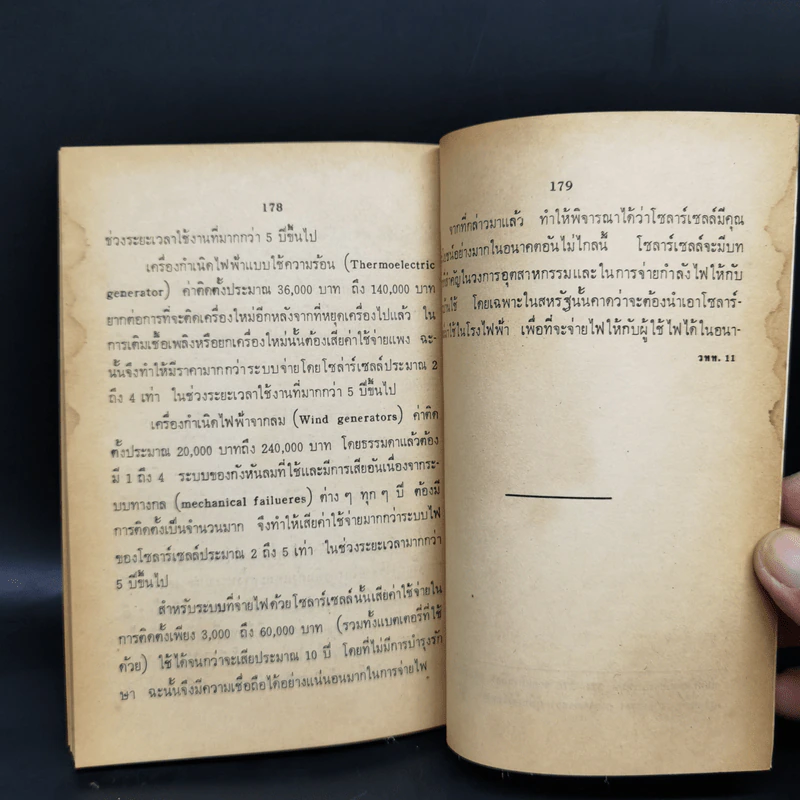 178
ช่วงระยะเวลาใช้งานที่มากกว่า 5 ปีขึ้นไป
เครื่องกำเนิดไฟฟ้าแบบใช้ความร้อน (Thermoelectric
generator) ค่าติดตั้งประมาณ 36,000 บาท ถึง 140,000 บาท
ยากต่อการที่จะติดเครื่องใหม่อีกหลังจากที่หยุดเครื่องไปแล้ว ใน
การเติมเชื้อเพลิงหรือยกเครื่องใหม่นั้นต้องเสียค่าใช้จ่ายแพง ฉะ-
นั้นจึงทำให้มีราคามากกว่าระบบจ่ายโดยโซล่าร์เซลล์ประมาณ 2
ถึง 4 เท่า ในช่วงระยะเวลาใช้งานที่มากกว่า 5 ปีขึ้นไป
เครื่องกำเนิดไฟฟ้าจากลม (Wind generators) ค่าติด
ตั้งประมาณ 20,000 บาทถึง 240,000 บาท โดยธรรมดาแล้วต้อง
มี 1 ถึง 4 ระบบของกังหันลมที่ใช้และมีการเสียอันเนื่องจากระ-
บบทางกล (mechanical failueres) ต่าง ๆ ทุก ๆ ปี ต้องมี
การติดตั้งเป็นจำนวนมาก จึงทำให้เสียค่าใช้จ่ายมากกว่าระบบไฟ
ของโซลาร์เซลล์ประมาณ 2 ถึง 5 เท่า ในช่วงระยะเวลามากกว่า
5 ปีขึ้นไป
สำหรับระบบที่จ่ายไฟด้วยโซลาร์เซลล์นั้นเสียค่าใช้จ่ายใน
การติดตั้งเพียง 3,000 ถึง 60,000 บาท (รวมทั้งแบตเตอรี่ที่ใช้
ด้วย) ใช้ได้จนกว่าจะเสียประมาณ 10 ปี โดยที่ไม่มีการบำรุงรัก
ษา ฉะนั้นจึงมีความเชื่อถือได้อย่างแน่นอนมากในการจ่ายไฟ
179
จากที่กล่าวมาแล้ว ทำให้พิจารณาได้ว่าโซลาร์เซลล์มีคุณ
อย่างมากในอนาคตอันไม่ไกลนี้ โซลาร์เซลล์จะมีบท
สำคัญในวงการอุตสาหกรรมและในการจ่ายกำลังไฟให้กับ
ใช้ โดยเฉพาะในสหรัฐนั้นคาดว่าจะต้องนำเอาโซลาร์-
ใช้ในโรงไฟฟ้า เพื่อที่จะจ่ายไฟให้กับผู้ใช้ไฟได้ในอนา-
วทท. 11